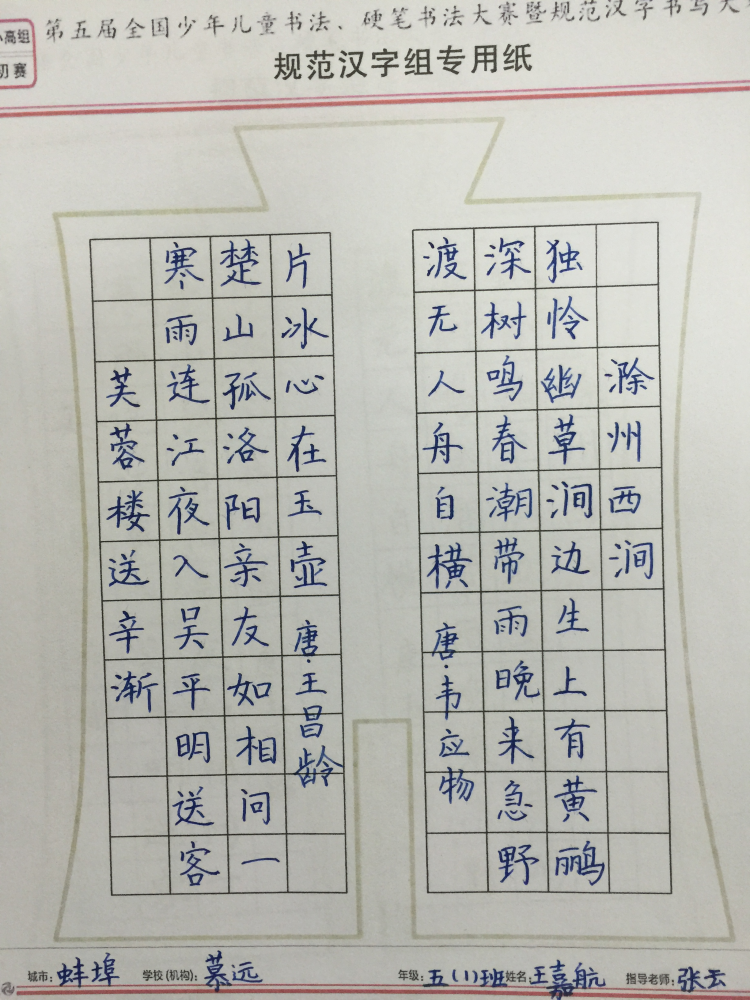 小高组
初赛
第五届全国少年儿童书法、硬笔书法大赛暨规范汉字书写大
规范汉字组专用纸
芙蓉楼送辛渐
寒雨连江夜入吴平明送客
楚山孤洛阳亲友如相问一
片冰心在玉壶唐·王昌龄
滁州西涧
独怜幽草涧边生上有黄鹂
深树鸣春潮带雨晚来急野
渡无人舟自横唐·韦应物
城市：蚌埠 学校（机构）：慕远 年级：五（1）班 姓名：王嘉航 指导老师：张云